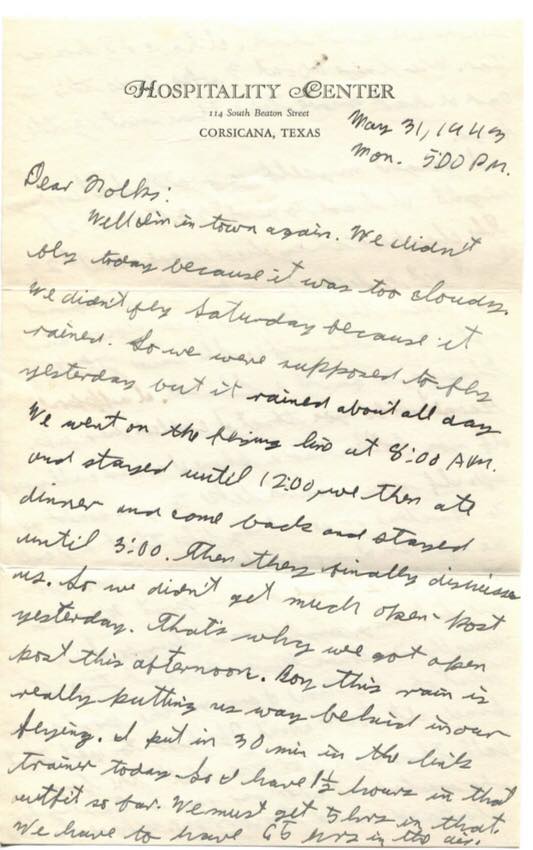 HOSPITALITY CENTER
114 South Beaton Street
CORSICANA, TEXAS
May 31, 1943
Mon. 5:00 P.M.
Dear Folks:
Well I'm in town again. We didn't
fly today because it was too cloudy.
We didn't fly Saturday because it
rained. So we were supposed to fly
yesterday but it rained about all day
We went on the flying line at 8:00 A.M.
and stayed until 12:00, we then ate
dinner and come back and stayed
until 3:00. Then they finally dismissed
us. So we didn't get much open-post
yesterday. That's why we got open
post this afternoon. Boy this rain is
really putting us way behind in our
flying. I put in 30 min in the link
trainer today so I have 1½ hours in that
outfit so far. We must get 5 hrs in that.
We have to have 65 hrs in the air.